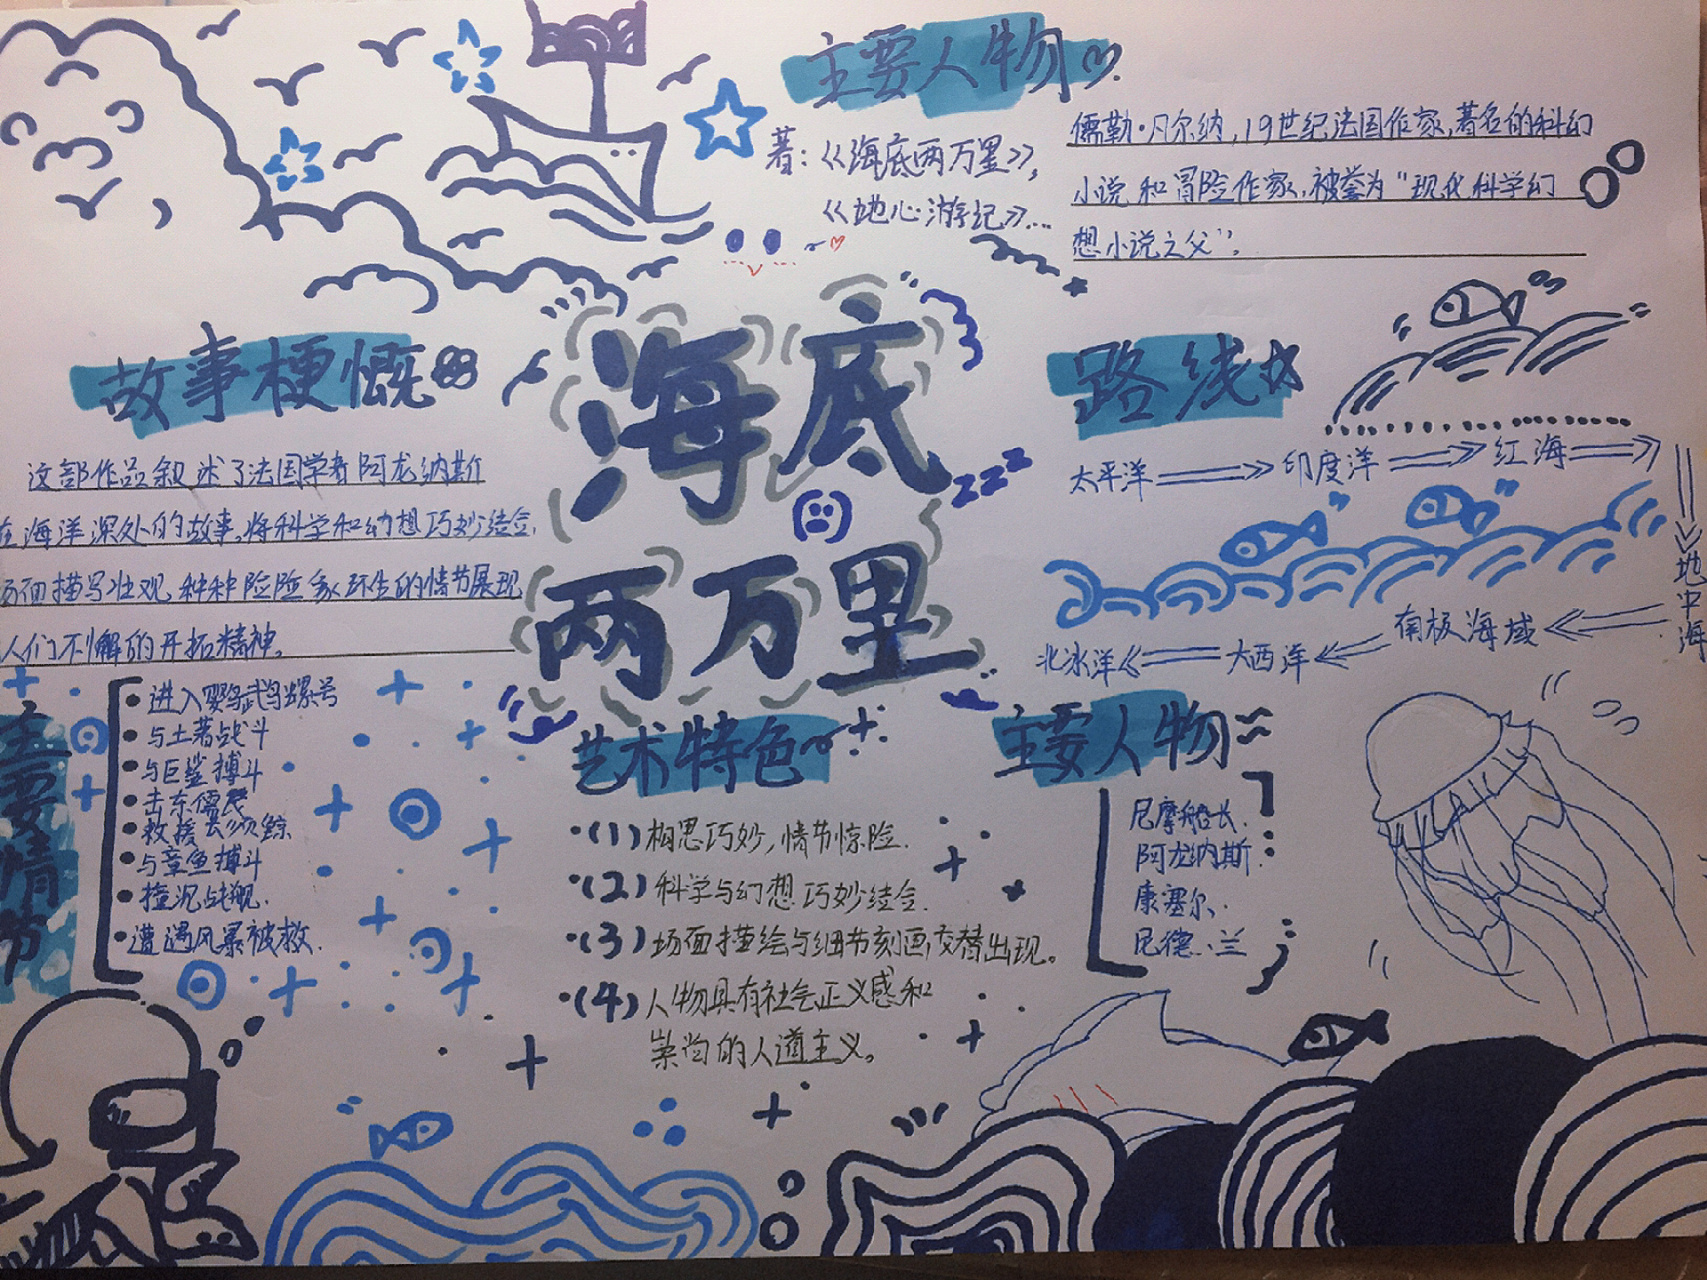 主要人物
著：《海底两万里》，
《地心游记》...
儒勒·凡尔纳，19世纪法国作家，著名的科幻
小说和冒险作家，被誉为“现代科学幻
想小说之父”。
海底
两万里
zzz
故事梗慨
这部作品叙述了法国学者阿龙纳斯
在海洋深处的故事。将科学和幻想巧妙结合，
场面描写壮观，种种险险象环生的情节展现
人们不懈的开拓精神。
路线
太平洋⇒印度洋⇒红海⇒
地中海
南极海域
大西洋
北冰洋
主要情节
·进入鹦鹉螺号
·与土著战斗
·与巨鲨搏斗
·击东儒民
·救援长须鲸
·与章鱼搏斗
·撞沉战舰.
·遭遇风暴被救.
艺术特色
·(1)构思巧妙,情节惊险.
·(2)科学与幻想巧妙结合.
·(3)场面描绘与细节刻画交替出现。
·(4)人物具有社会正义感和
崇尚的人道主义。
主要人物
尼摩船长.
阿龙纳斯.
康塞尔.
尼德·兰